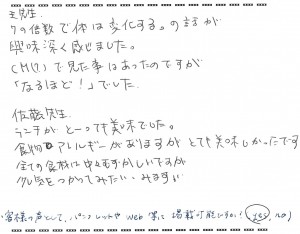 先生
7の倍数で体は変化する。の話が
興味深く感じました。
CMで見た事はあったのですが
「なるほど!」でした。
佐藤先生
ランチがとーっても美味でした。
食物アレルギーがありますがとても美味しかったです
全ての食材に中々むずかしいですが
気をつかってみたいとみます
客様の声として、パンフレットやweb等に掲載可能ですか? (yes, no)